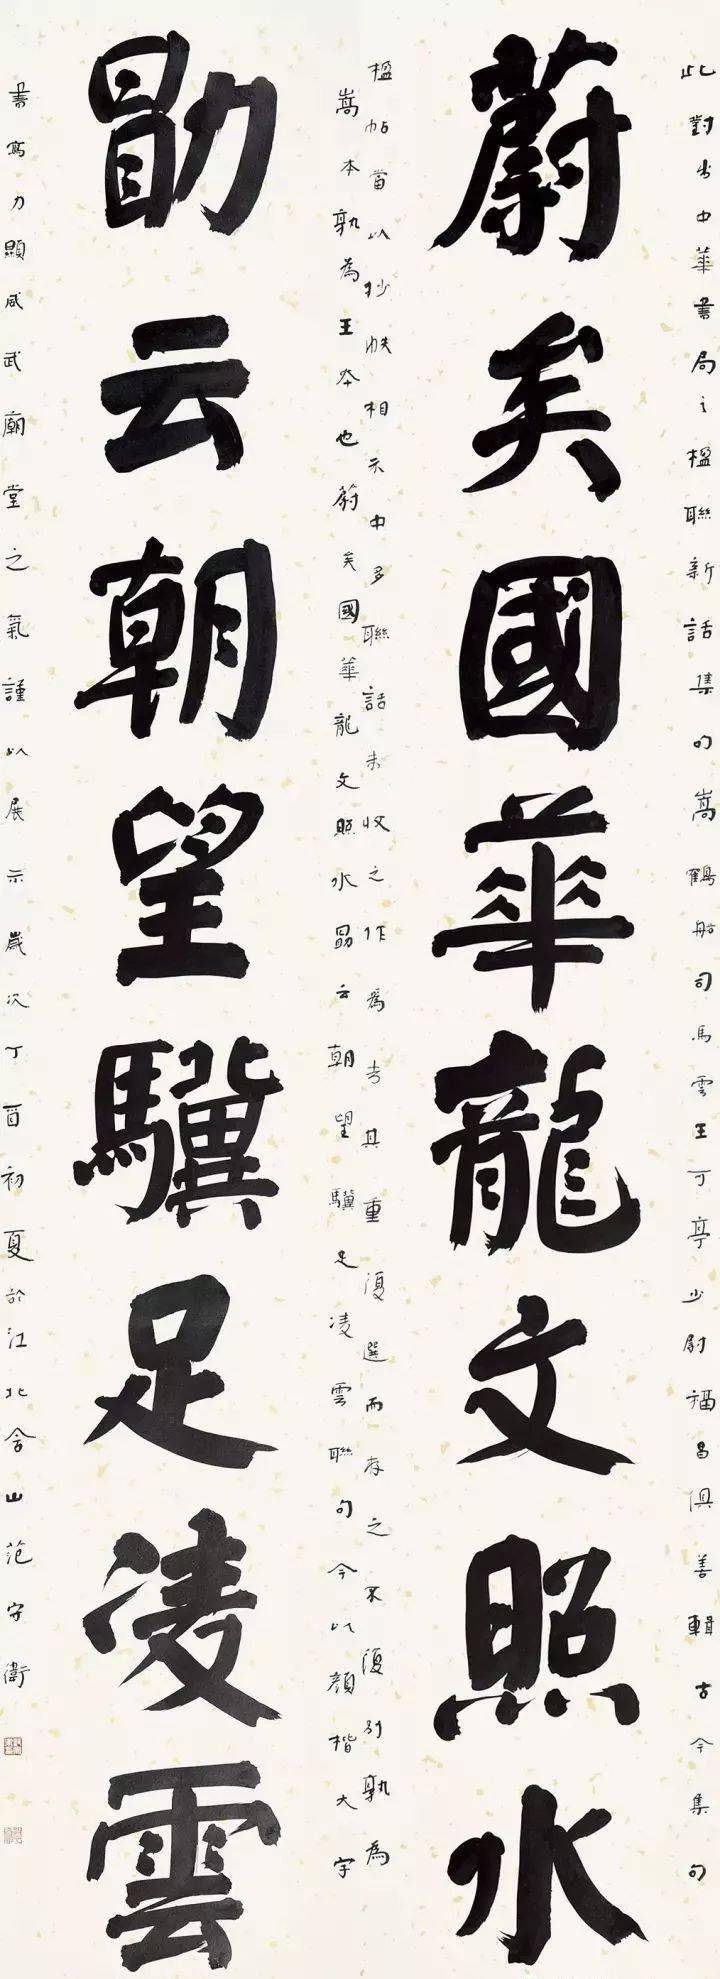 此對出中華書局之楹聯新話集句嵩鶴船司馬雲王丁亭少尉福昌俱善輯古今集句
蔚矣國華龍文照水
楹帖嘗以抄帙相示中多聯話未收之作為考其重復選而存之不復別孰為
嵩本孰為王本也蔚矣國華龍文照水勖云朝望驥足凌雲聯句今以顏楷大字
勖云朝望驥足凌雲
書寫力顯咸武廟堂之氣謹以展示歲次丁酉初夏於江北含山范守衛